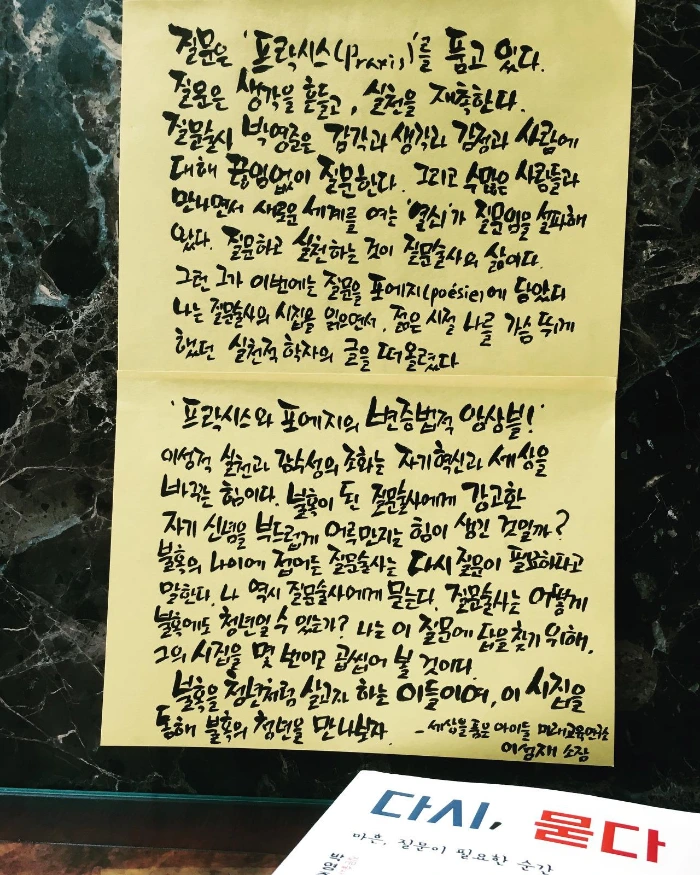 질문은 '프락시스(Praxis)'를 품고 있다.
질문은 생각을 흔들고, 실천을 재촉한다.
질문술사 박영준은 감각과 생각과 감정과 사람에
대해 끊임없이 질문한다. 그리고 수많은 사람들과
만나면서 새로운 세계를 여는 '열쇠'가 질문임을 설파해
왔다. 질문하고 실천하는 것이 질문술사의 삶이다.
그런 그가 이번에는 질문을 포에지(poésie)에 담았다
나는 질문술사의 시집을 읽으면서, 젊은 시절 나를 가슴 뛰게
했던 실천적 학자의 글을 떠올렸다
'프락시스와 포에지의 변증법적 앙상블!'
이성적 실천과 감수성의 조화는 자기혁신과 세상을
바꾸는 힘이다. 불혹이 된 질문술사에게 강고한
자기 신념을 부드럽게 어루만지는 힘이 생긴 것일까?
불혹의 나이에 접어든 질문술사는 다시 질문이 필요하다고
말한다. 나 역시 질문술사에게 묻는다. 질문술사는 어떻게
불혹에도 청년일 수 있는가? 나는 이 질문에 답을 찾기 위해,
그의 시집을 몇 번이고 곱씹어 볼 것이다.
불혹을 청년처럼 살고자 하는 이들이여, 이 시집을
통해 불혹의 청년을 만나보자
- 세상을 품은 아이들 미래교육연구소
이성재 소장
다시, 묻다
마흔, 질문이 필요한 순간
박영